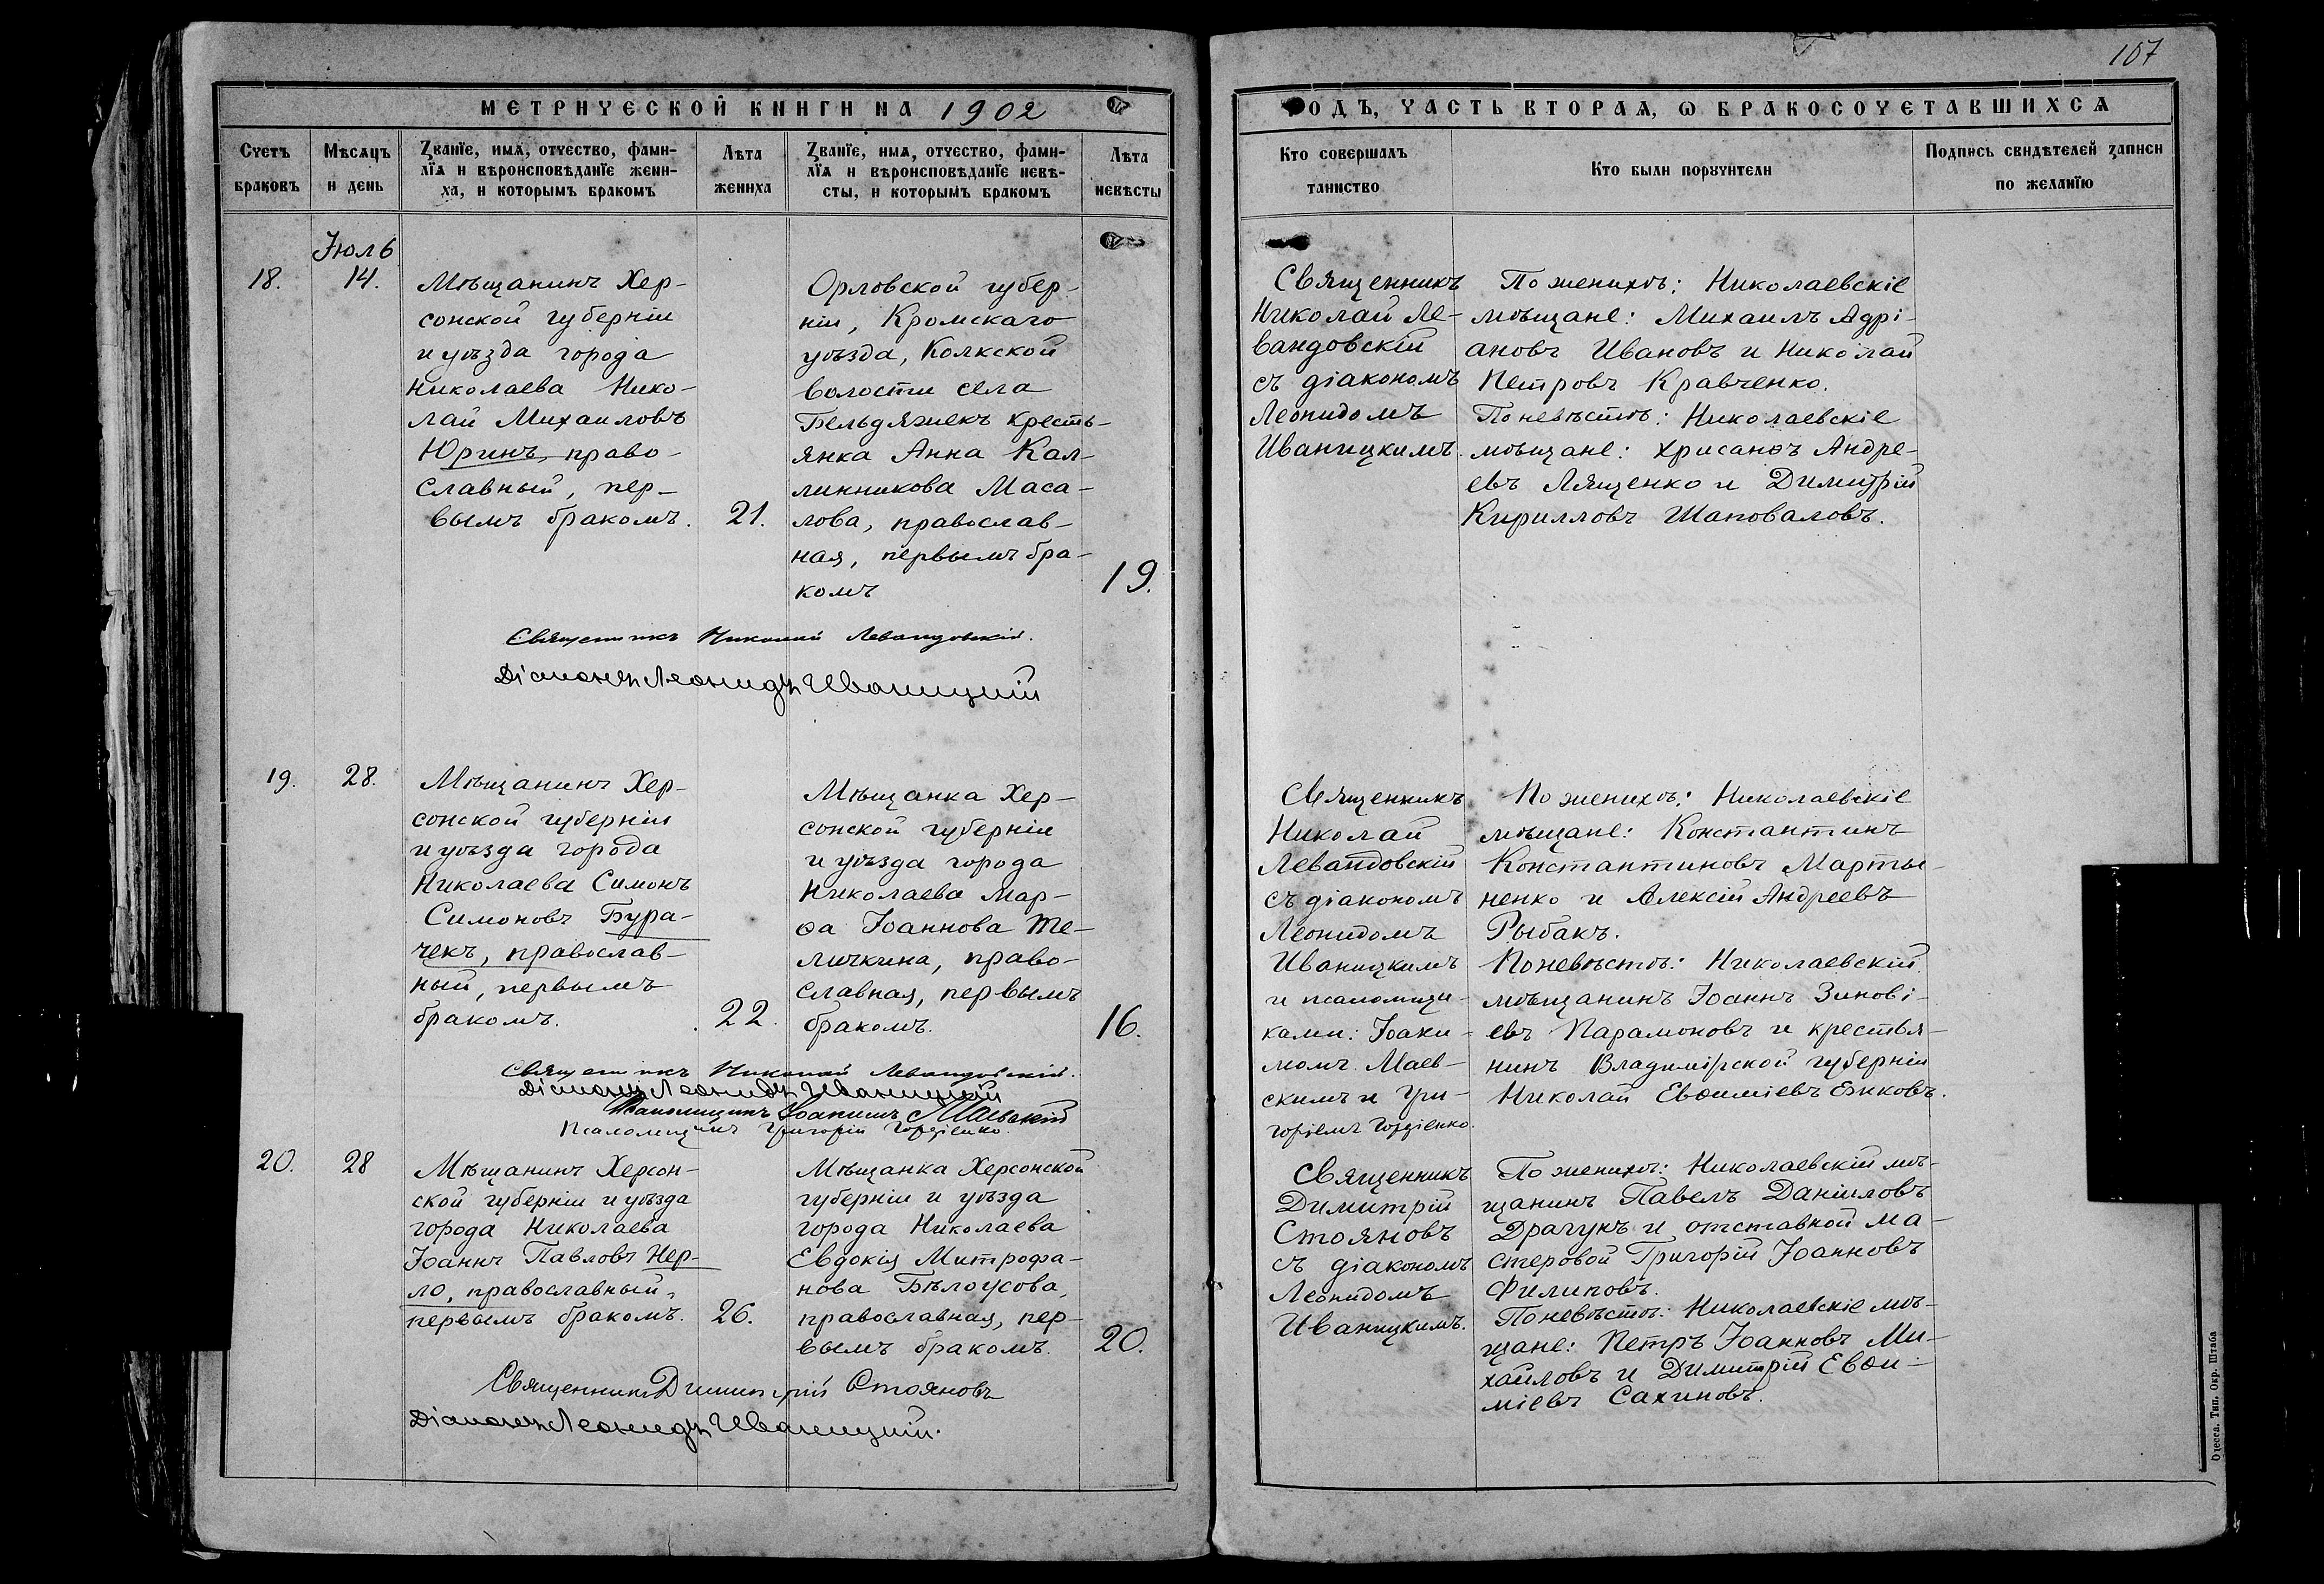 107
МЕТРИЧЕСКОЙ КНИГИ НА 1902
ГОДЪ, ЧАСТЬ ВТОРАѦ, Ѡ БРАКОСОЧЕТАВШИХСѦ
Счетъ
браковъ
Мѣсѧцъ
и день
Званїе, имѧ, отчество, фами-
лїѧ и вѣроисповѣданїе жени-
ха, и которымъ бракомъ
Лѣта
жениха
Званїе, имѧ, отчество, фами-
лїѧ и вѣроисповѣданїе невѣ-
сты, и которымъ бракомъ
Лѣта
невѣсты
Кто совершалъ
таинство
Кто были поручители
Подпись свидѣтелей записи
по желанїю
Іюль
18.
14.
Мѣщанинъ Хер-
сонской губерніи
и уѣзда города
Николаева Нико-
лай Михаиловъ
Юринъ, право-
славный, пер-
вымъ бракомъ.
21.
Орловской губер-
ніи, Кромскаго
уѣзда, Колкской
волости села
Бельдяжекъ кресть-
янка Анна Кал-
линникова Маса-
лова, православ-
ная, первымъ бра-
комъ
19.
Священникъ
Николай Ле-
вандовскій
съ діакономъ
Леонидомъ
Иваницкимъ.
По женихѣ: Николаевскіе
мѣщане: Михаилъ Адрі-
ановъ Ивановъ и Николай
Петровъ Кравченко.
По невѣстѣ: Николаевскіе
мѣщане: Хрисанѳъ Андре-
евъ Лященко и Димитрій
Кирилловъ Шаповаловъ.
Священникъ Николай Левандовскій.
Діаконъ Леонидъ Иваницкій
19.
28.
Мѣщанинъ Хер-
сонской губерніи
и уѣзда города
Николаева Симонъ
Симоновъ Бура-
чекъ, православ-
ный, первымъ
бракомъ.
22.
Мѣщанка Хер-
сонской губерніи
и уѣзда города
Николаева Мар-
ѳа Іоаннова Те-
личкина, право-
славная, первымъ
бракомъ.
16.
Священникъ
Николай
Левандовскій
съ діакономъ
Леонидомъ
Иваницкимъ
и псаломщи-
ками: Іоаки-
момъ Маев-
скимъ и Гри-
горіемъ Гордіенко.
По женихѣ: Николаевскіе
мѣщане: Константинъ
Константиновъ Марты-
ненко и Алексій Андреевъ
Рыбакъ.
По невѣстѣ: Николаевскій
мѣщанинъ Іоаннъ Зинові-
евъ Парамоновъ и крестья-
нинъ Владимірской губерніи
Николай Евѳиміевъ Ежиковъ.
Священникъ Николай Левандовскій.
Діаконъ Леонидъ Иваницкій
Псаломщикъ Іоакимъ Маевскій
Псаломщикъ Григорій Гордіенко.
20.
28
Мѣщанинъ Херсон-
ской губерніи и уѣзда
города Николаева
Іоаннъ Павловъ Нер-
ло, православный,
первымъ бракомъ.
26.
Мѣщанка Херсонской
губерніи и уѣзда
города Николаева
Евдокія Митрофа-
нова Бѣлоусова,
православная, пер-
вымъ бракомъ.
20.
Священникъ
Димитрій
Стояновъ
съ діакономъ
Леонидомъ
Иваницкимъ.
По женихѣ: Николаевскій мѣ-
щанинъ Павелъ Даніиловъ
Драгунъ и отставной ма-
стеровой Григорій Іоанновъ
Филиповъ.
По невѣстѣ: Николаевскіе мѣ-
щане: Петръ Іоанновъ Ми-
хаиловъ и Димитрій Евѳи-
міевъ Сахиновъ.
Священникъ Димитрій Стояновъ
Діаконъ Леонидъ Иваницкій.
Одесса. Тип. Окр. Штаба